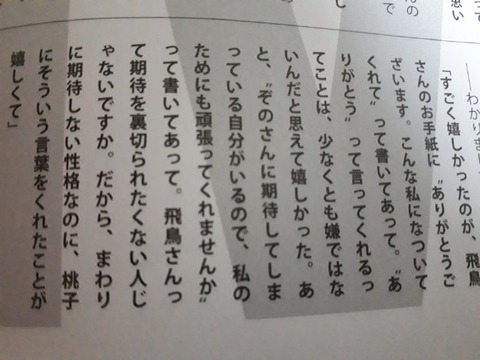 ——わかりまし
「すごく嬉しかったのが、飛鳥
さんのお手紙に〝ありがとうご
ざいます。こんな私になついて
くれて〟って書いてあって。〝あ
りがとう〟って言ってくれるっ
てことは、少なくとも嫌ではな
いんだと思えて嬉しかった。あ
と、〝ぞのさんに期待してしま
っている自分がいるので、私の
ためにも頑張ってくれませんか〟
って書いてあって。飛鳥さんっ
て期待を裏切られたくない人じ
ゃないですか。だから、まわり
に期待しない性格なのに、桃子
にそういう言葉をくれたことが
嬉しくて」